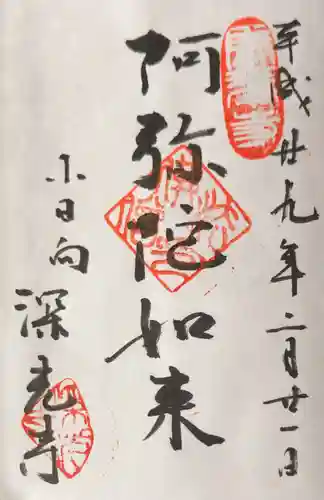 平成廿九年二月廿一日
阿弥陀如来
小日向
深光寺